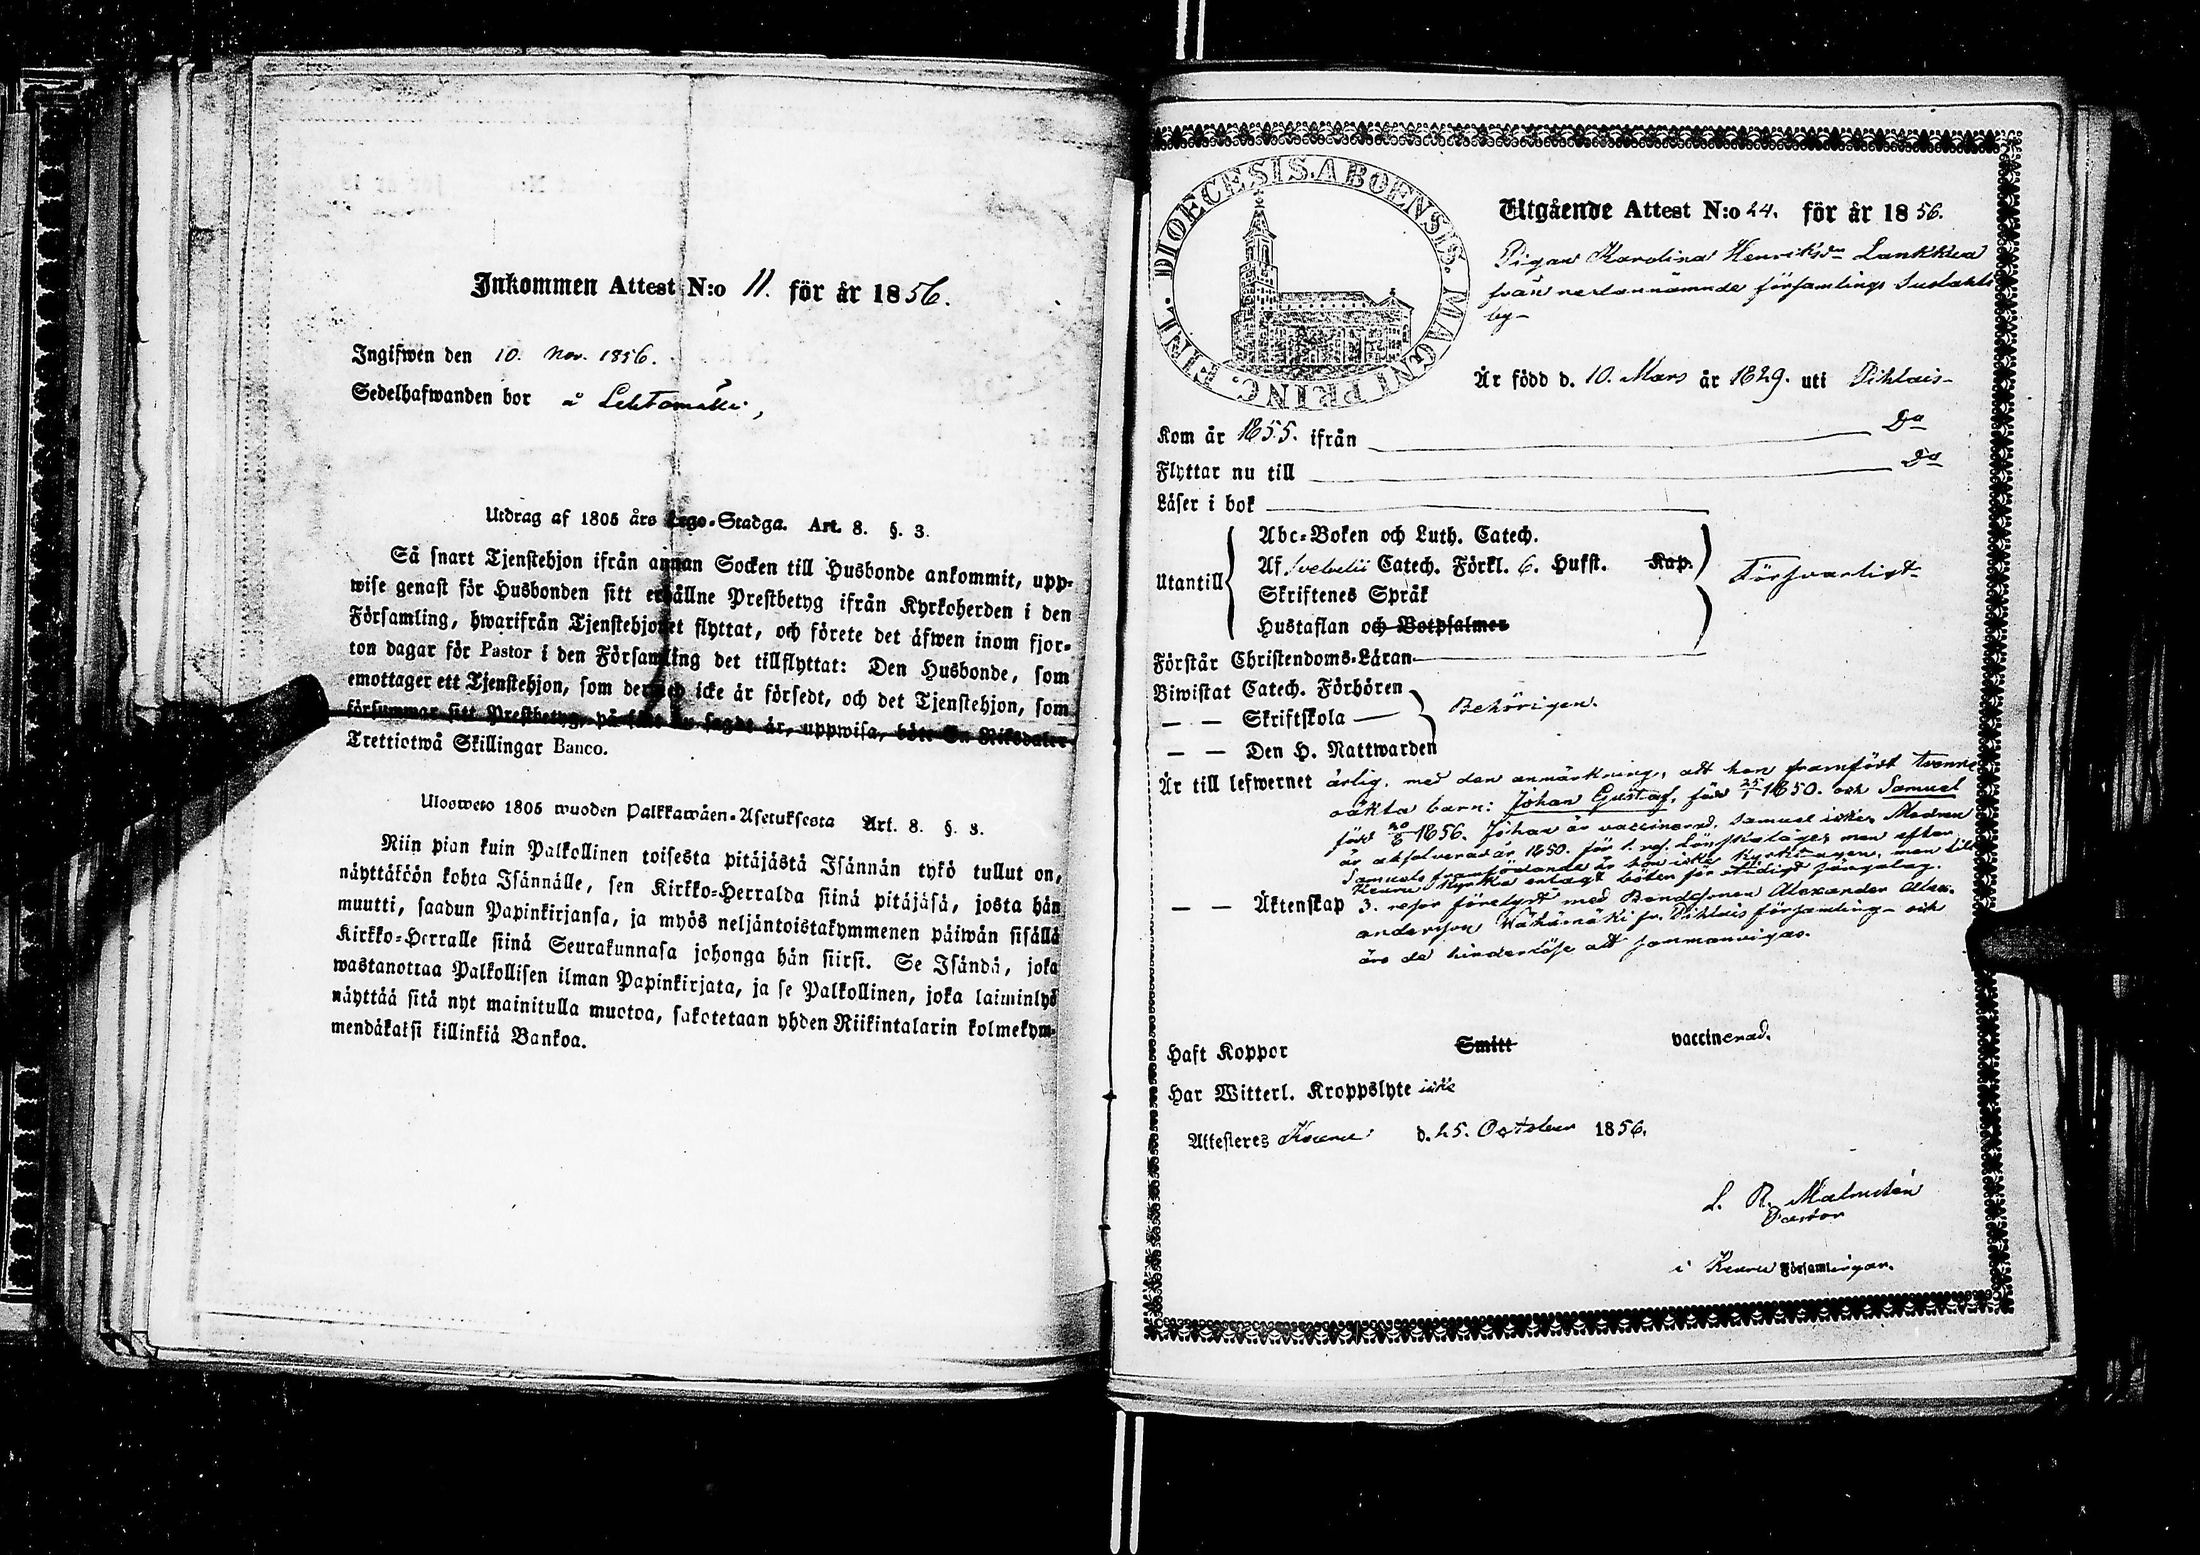 Inkommen Attest N:o 11. för år 1856.
Ingifwen den 10. Nov. 1856.
Sedelhafwanden bor å Lehtomäki,
Utdrag af 1805 års Lego-Stadga. Art. 8. §. 3.
Så snart Tjenstehjon ifrån annan Socken till Husbonde ankommit, upp-
wise genast för Husbonden sitt erhållne Prestbetyg ifrån Kyrkoherden i den
Församling, hwarifrån Tjenstehjonet flyttat, och förete det äfwen inom fjor-
ton dagar för Pastor i den Församling det tillflyttat: Den Husbonde, som
emottager ett Tjenstehjon, som dermed icke är försedt, och det Tjenstehjon, som
försummar sitt Prestbetyg, på sätt nu sagdt är, uppwisa, böte En Riksdaler
Trettiotwå Skillingar Banco.
Ulosweto 1805 wuoden Palkkawäen-Asetuksesta Art. 8. §. 3.
Niin pian kuin Palkollinen toisesta pitäjästä Isännän tykö tullut on,
näyttäköön kohta Isännälle, sen Kirkko-Herralda siinä pitäjäsä, josta hän
muutti, saadun Papinkirjansa, ja myös neljäntoistakymmenen päiwän sisällä
Kirkko-Herralle siinä Seurakunnasa johonga hän siirsi. Se Isändä, joka
wastanottaa Palkollisen ilman Papinkirjata, ja se Palkollinen, joka laiminlyö
näyttää sitä nyt mainitulla muotoa, sakotetaan yhden Riikintalarin kolmekym-
mendäkaksi killinkiä Bankoa.
DIOECESIS. ABOENSIS. MAGNI PRINC. FINL.
Utgående Attest N:o 24. för år 1856.
Pigan Karolina Henriksdr Lankkua
från nedannämnde församlings
by
Är född d. 10. Mars år 1829. uti Pihlais-
Kom år 1855. ifrån Do
Flyttar nu till Do
Läser i bok
Abc-Boken och Luth. Catech.
Af Svebelii Catech. Förkl. 6. Hufst. Kap.
Utantill Försvarligt
Skriftenes Språk
Hustaflan och Botpsalmer
Förstår Christendoms-Läran
Biwistat Catech. Förhören
— — Skriftskola — Behörigen.
— — Den H. Nattwarden
Är till lefwernet ärlig, med den anmärkning, att hon framfört tvenne
oäkta barn: Johan Gustaf, född 25/1 1850. och Samuel
född 1856. Johan är vaccinerad. Samuel icke. Modren
är absolverad år 1850. för 1. men efter
Samuels framfödande är hon icke kyrktagen, men till
Keuru Kyrka erlagt böter för otidigt sängalag.
— — Äktenskap 3. resor förelyst med Bondesonen Alexander Alex-
andersson fr. Pihlais församling - och
äro de hinderlöse att sammanvigas.
Haft Koppor Smitt vaccinerad.
Har Witterl. Kroppslyte icke
Attesteres Keuru d. 25. October 1856.
L. R. Malmstén
Pastor
i Keuru Församlingar.